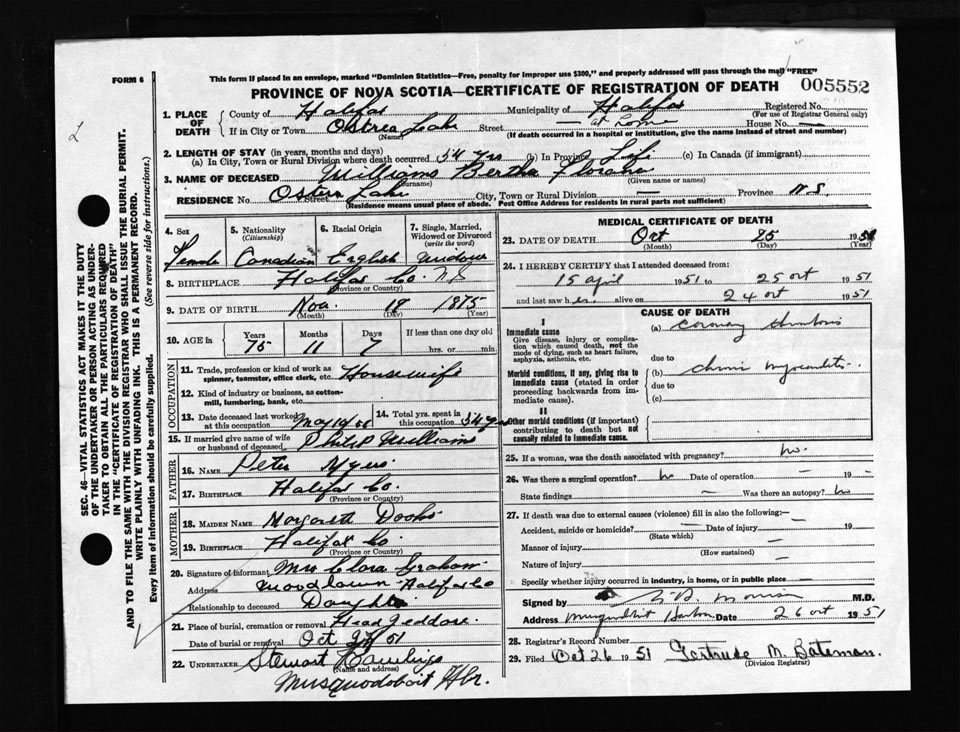 FORM 6
This form if placed in an envelope, marked "Dominion Statistics—Free, penalty for improper use $300," and properly addressed will pass through the mail "FREE"
PROVINCE OF NOVA SCOTIA—CERTIFICATE OF REGISTRATION OF DEATH
005552
1. PLACE OF DEATH
County of Halifax Municipality of Halifax Registered No.
(For use of Registrar General only)
If in City or Town Ostrea Lake Street — at home House No. —
(Name) (If death occurred in a hospital or institution, give the name instead of street and number)
2. LENGTH OF STAY (in years, months and days)
(a) In City, Town or Rural Division where death occurred 54 yrs (b) In Province Life (c) In Canada (if immigrant)
3. NAME OF DECEASED Williams Bertha
(Surname) (Given name or names)
RESIDENCE No. Street City, Town or Rural Division — Province N.S.
(Residence means usual place of abode. Post Office Address for residents in rural parts not sufficient)
4. Sex Female
5. Nationality (Citizenship) Canadian
6. Racial Origin English
7. Single, Married, Widowed or Divorced (write the word) widow
8. BIRTHPLACE Halifax Co. N.S
(Province or Country)
9. DATE OF BIRTH Nov. 18 1875
(Month) (Day) (Year)
10. AGE in Years 75 Months 11 Days 7 If less than one day old hrs. or min.
OCCUPATION
11. Trade, profession or kind of work as spinner, teamster, office clerk, etc. Housewife
12. Kind of industry or business, as cotton-mill, lumbering, bank, etc.
13. Date deceased last worked at this occupation
14. Total yrs. spent in this occupation 54 yrs
15. If married give name of wife or husband of deceased Philip Williams
FATHER
16. NAME Peter Myers
17. BIRTHPLACE Halifax Co.
(Province or Country)
MOTHER
18. MAIDEN NAME Margarett Dooks
19. BIRTHPLACE Halifax Co
(Province or Country)
20. Signature of informant Mrs Clora Graham
Address Woodlawn Halifax Co
Relationship to deceased Daughter
21. Place of burial, cremation or removal Head Jeddore.
Date of burial or removal Oct 51
22. UNDERTAKER Stewart Rawlings
(Name and address)
Musquodoboit Hbr.
MEDICAL CERTIFICATE OF DEATH
23. DATE OF DEATH Oct 25 1951
(Month) (Day) (Year)
24. I HEREBY CERTIFY that I attended deceased from:
15 april 1951 to 25 oct 1951
and last saw her alive on 24 oct 1951
CAUSE OF DEATH
I
Immediate cause
Give disease, injury or complication which caused death, not the mode of dying, such as heart failure, asphyxia, asthenia, etc.
(a) coronary thrombosis
due to
Morbid conditions, if any, giving rise to immediate cause (stated in order proceeding backwards from immediate cause).
(b) chronic myocarditis
due to
(c)
II
Other morbid conditions (if important) contributing to death but not causally related to immediate cause.
25. If a woman, was the death associated with pregnancy? No.
26. Was there a surgical operation? No Date of operation — 19 —
State findings — Was there an autopsy? No
27. If death was due to external causes (violence) fill in also the following:—
Accident, suicide or homicide? — Date of injury — 19
(State which)
Manner of injury —
(How sustained)
Nature of injury —
Specify whether injury occurred in industry, in home, or in public place —
Signed by M.D.
Address Musquodoboit Harbour Date 26 oct 1951
28. Registrar's Record Number
29. Filed Oct 26 1951 Gertrude M. Bateman.
(Division Registrar)
SEC. 46—VITAL STATISTICS ACT MAKES IT THE DUTY
OF THE UNDERTAKER OR PERSON ACTING AS UNDER-
TAKER TO OBTAIN ALL THE PARTICULARS REQUIRED
IN THE "CERTIFICATE OF REGISTRATION OF DEATH"
AND TO FILE THE SAME WITH THE DIVISION REGISTRAR WHO SHALL ISSUE THE BURIAL PERMIT.
WRITE PLAINLY WITH UNFADING INK. THIS IS A PERMANENT RECORD.
Every item of information should be carefully supplied. (See reverse side for instructions.)